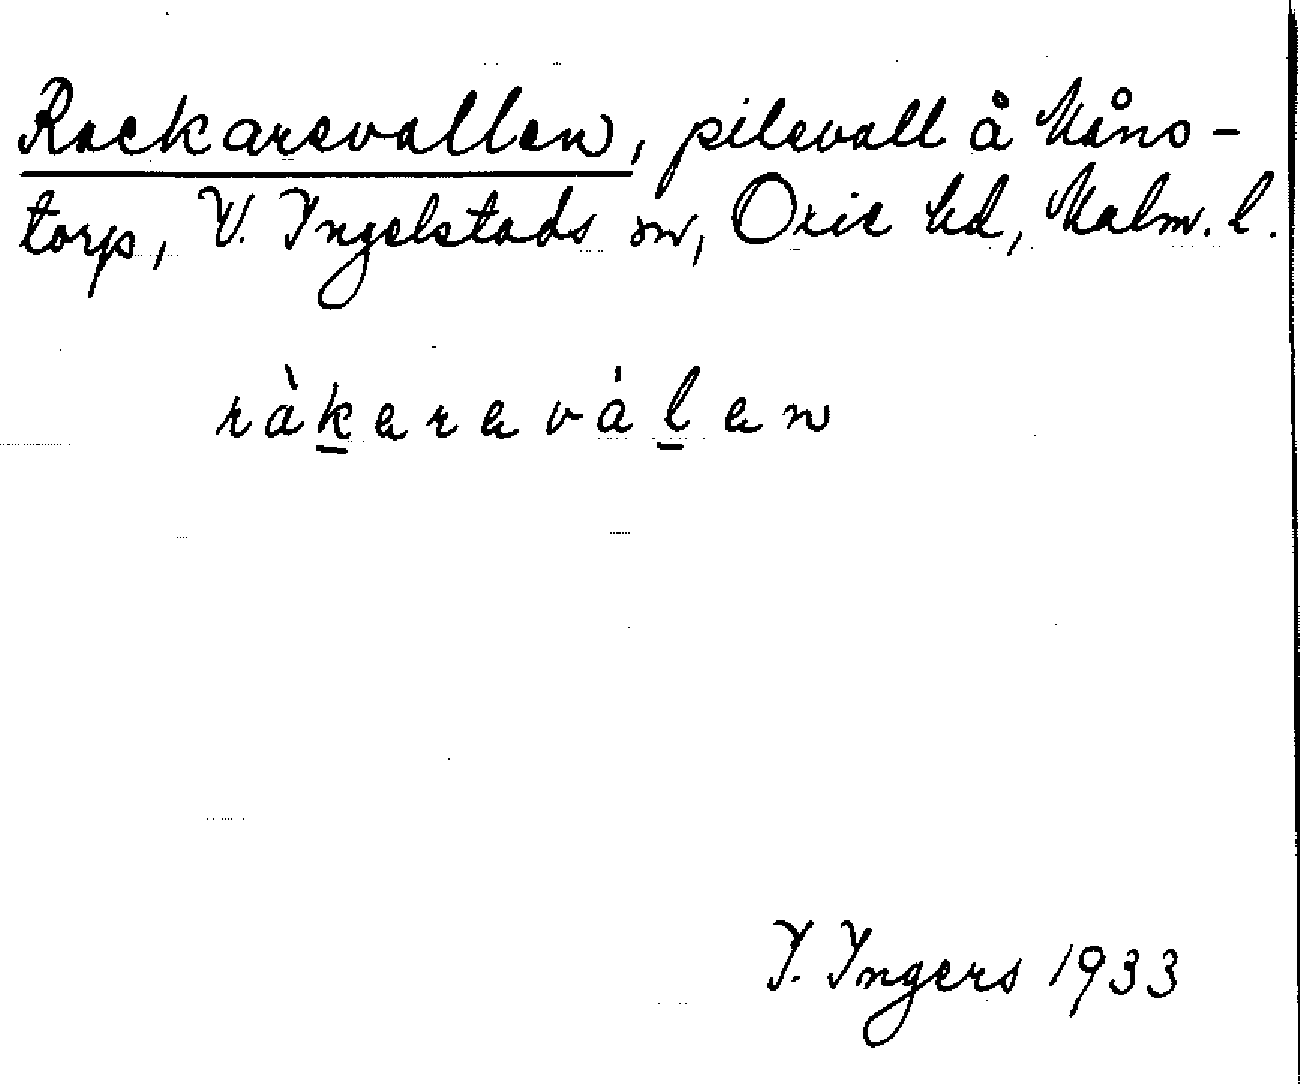 Rackarevallen, pilevall å Måns-
torp, V. Ingelstads sn, Oxie hd, Malm. l.
ràkaraválen
I. Ingers 1933